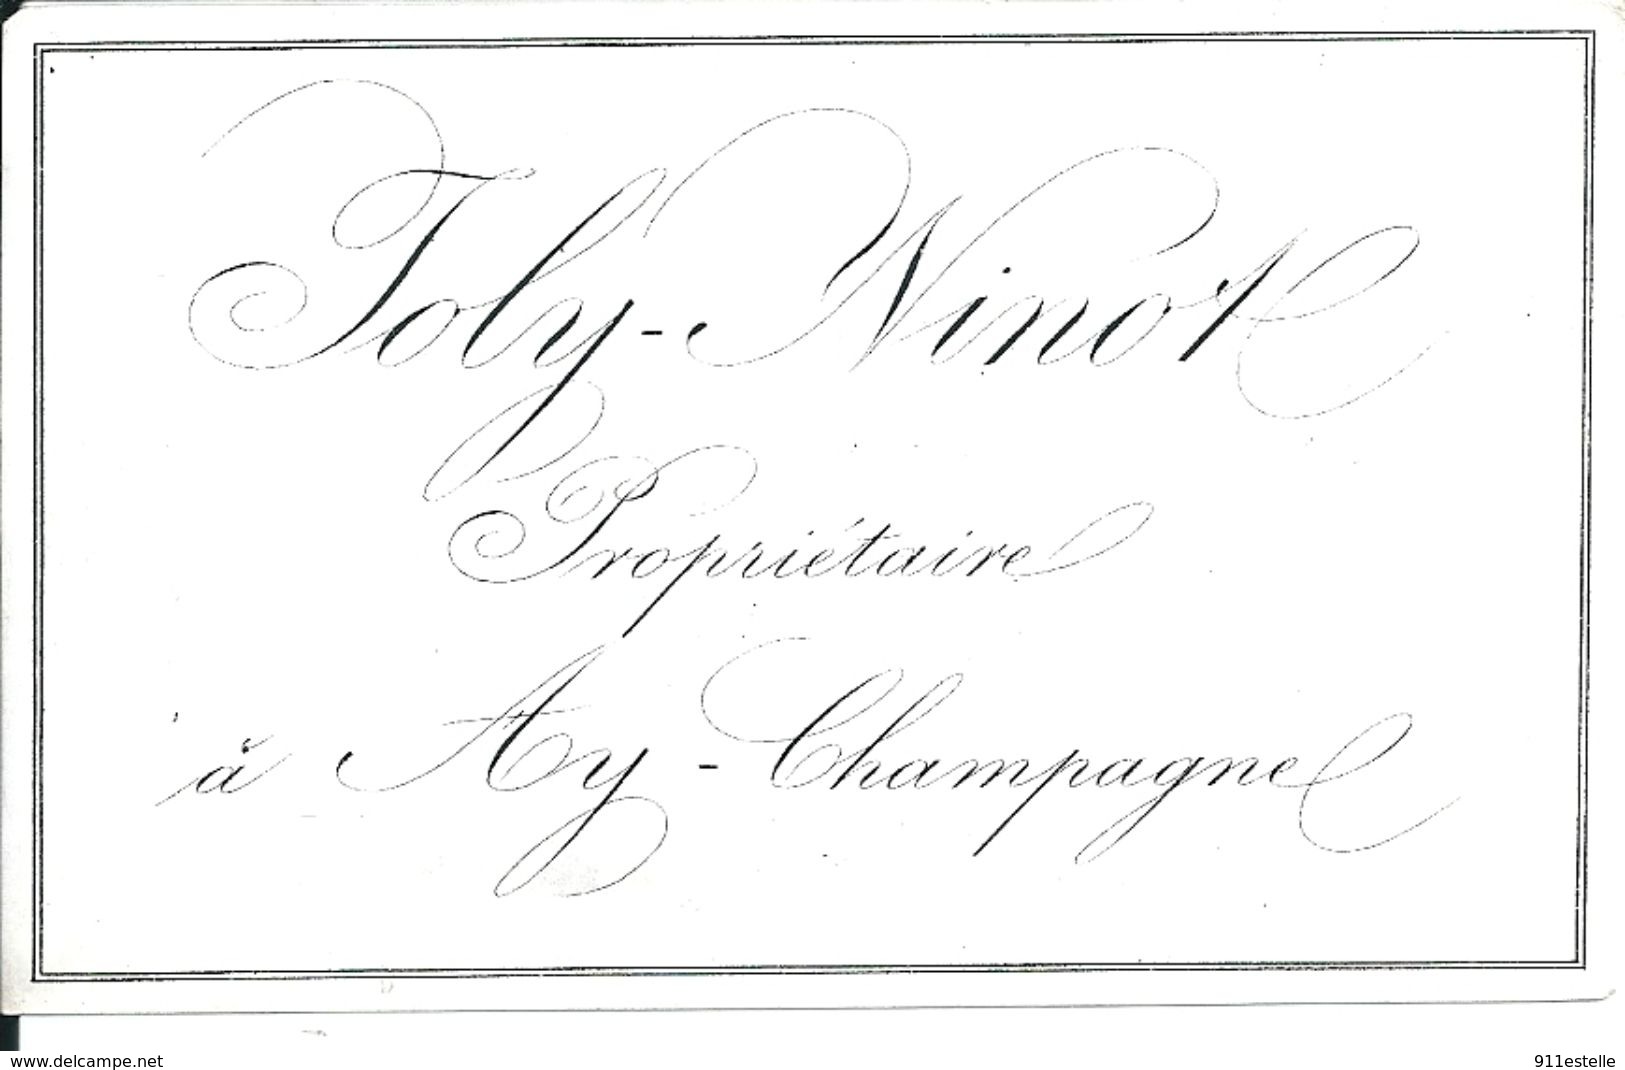 Joly-Ninot
Propriétaire
à Ay - Champagne
www.delcampe.net
911estelle